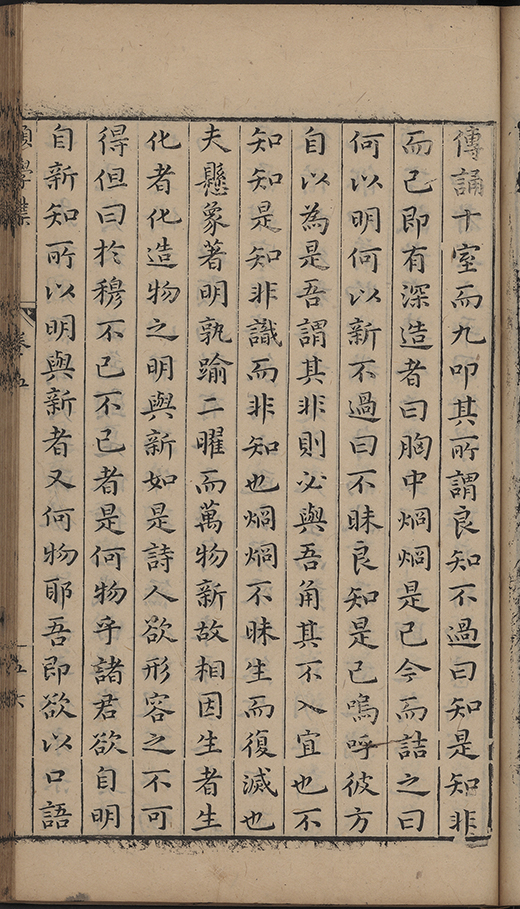 傳誦十室而九叩其所謂良知不過曰知是知非
而已即有深造者曰胸中烱烱是已今而詰之曰
何以明何以新不過曰不昧良知是已嗚呼彼方
自以為是吾謂其非則必與吾角其不入宜也不
知知是知非識而非知也烱烱不昧生而復滅也
夫懸象著明孰踰二曜而萬物新故相因生者生
化者化造物之明與新如是詩人欲形容之不可
得但曰於穆不已不已者是何物乎諸君欲自明
自新知所以明與新者又何物耶吾即欲以口語
學集
卷五
五六